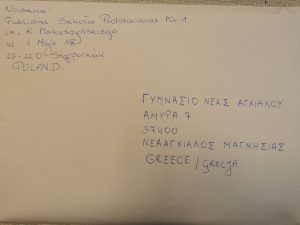 Nadawca:
Publiczna Szkoła Podstawowa Nr 1
im. K. Makuszyńskiego
ul. 1 Maja 18
26-220 Stąporków
POLAND
ΓΥΜΝΑΣΙΟ ΝΕΑΣ ΑΓΧΙΑΛΟΥ
ΑΜΥΡΑ 7
37400
ΝΕΑ ΑΓΧΙΑΛΟΣ ΜΑΓΝΗΣΙΑΣ
GREECE / GRECJA